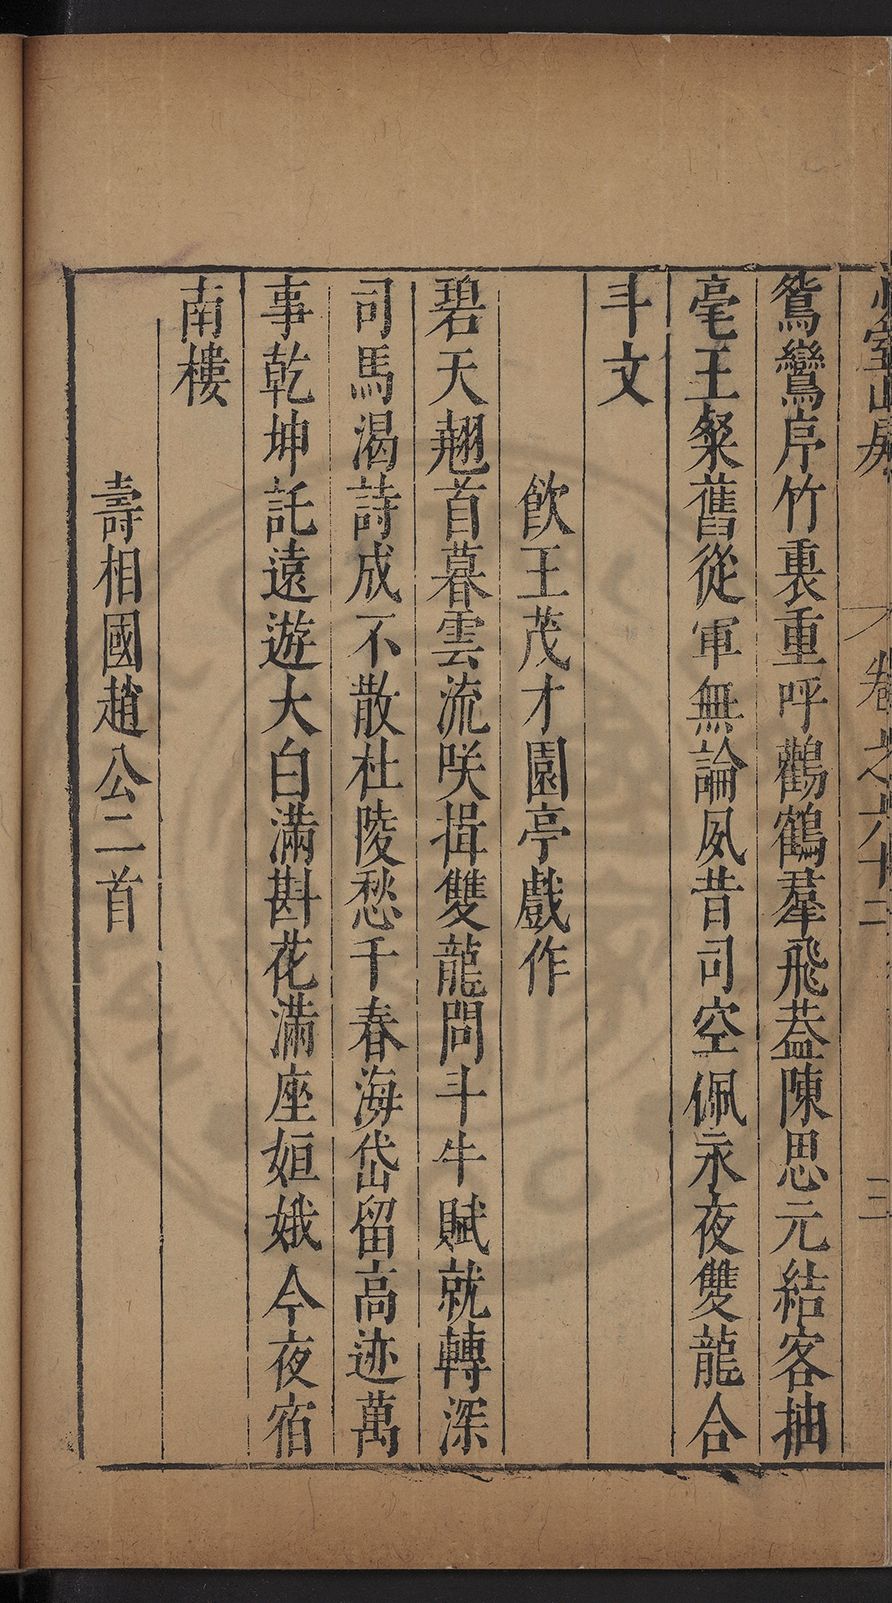 卷之六十三
三
鴛鸞序竹裏重呼鸛鶴羣飛葢陳思元結客抽
毫王粲舊從軍無論夙昔司空佩永夜雙龍合
斗文
飲王茂才園亭戲作
碧天翹首暮雲流咲揖雙龍問斗牛賦就轉深
司馬渴詩成不散杜陵愁千春海岱留高迹萬
事乾坤託遠遊大白滿斟花滿座姮娥今夜宿
南樓
壽相國趙公二首